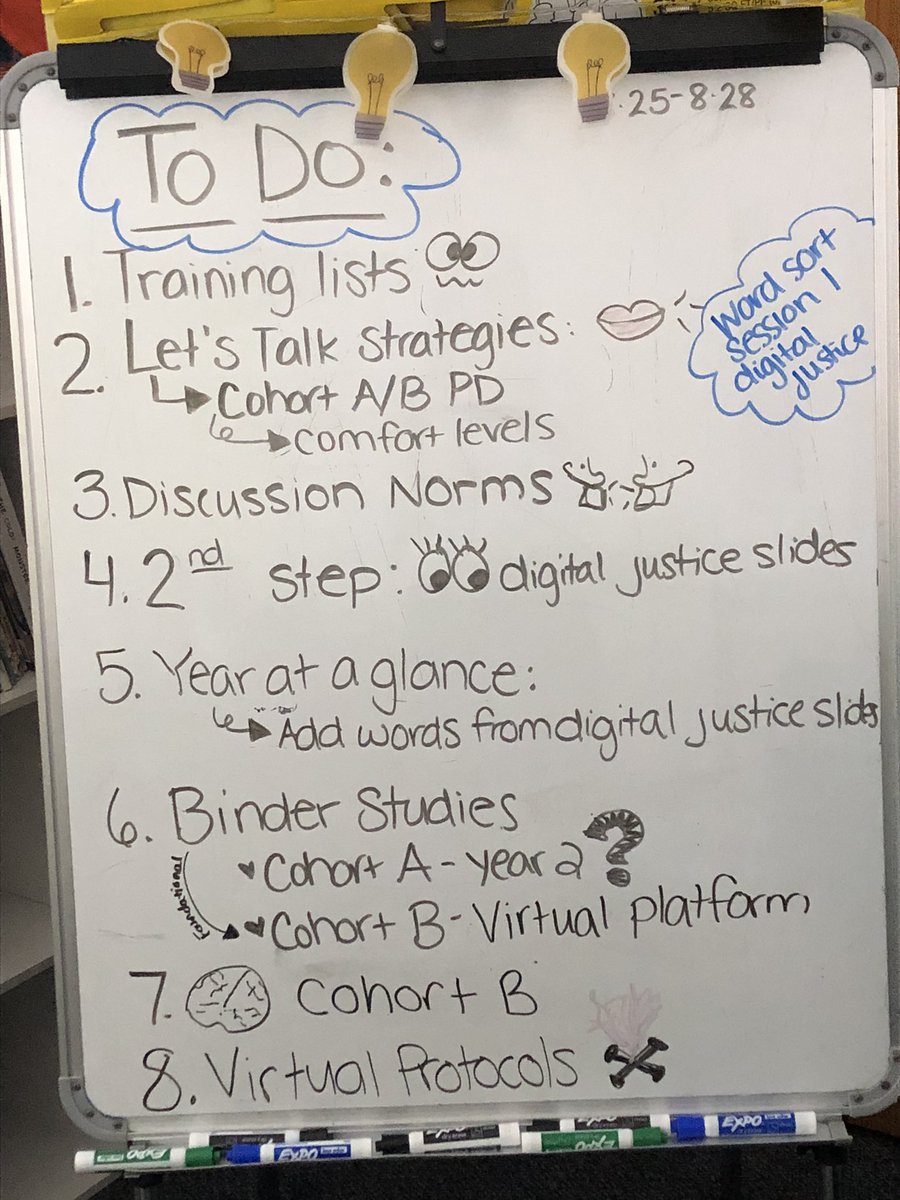 25-8.28
To Do:
1. Training lists
2. Let's Talk Strategies:
Cohort A/B PD
comfort levels
Word sort
session 1
digital
justice
3. Discussion Norms
4. 2nd step: digital justice slides
5. Year at a glance:
Add words from digital justice slides
6. Binder Studies
Cohort A - year 2 ?
foundational
Cohort B - Virtual platform
7. Cohort B
8. Virtual Protocols
EXPO
EXPO
EXPO
EXPO